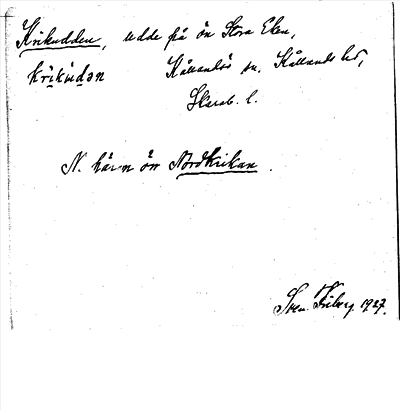 Krikudden, udde på ön Stora Eken,
krikudən Kållandsö sn. Kållands hd,
Skarab. l.
N. härom är Nordkrikan.
Sven Friberg 1927.